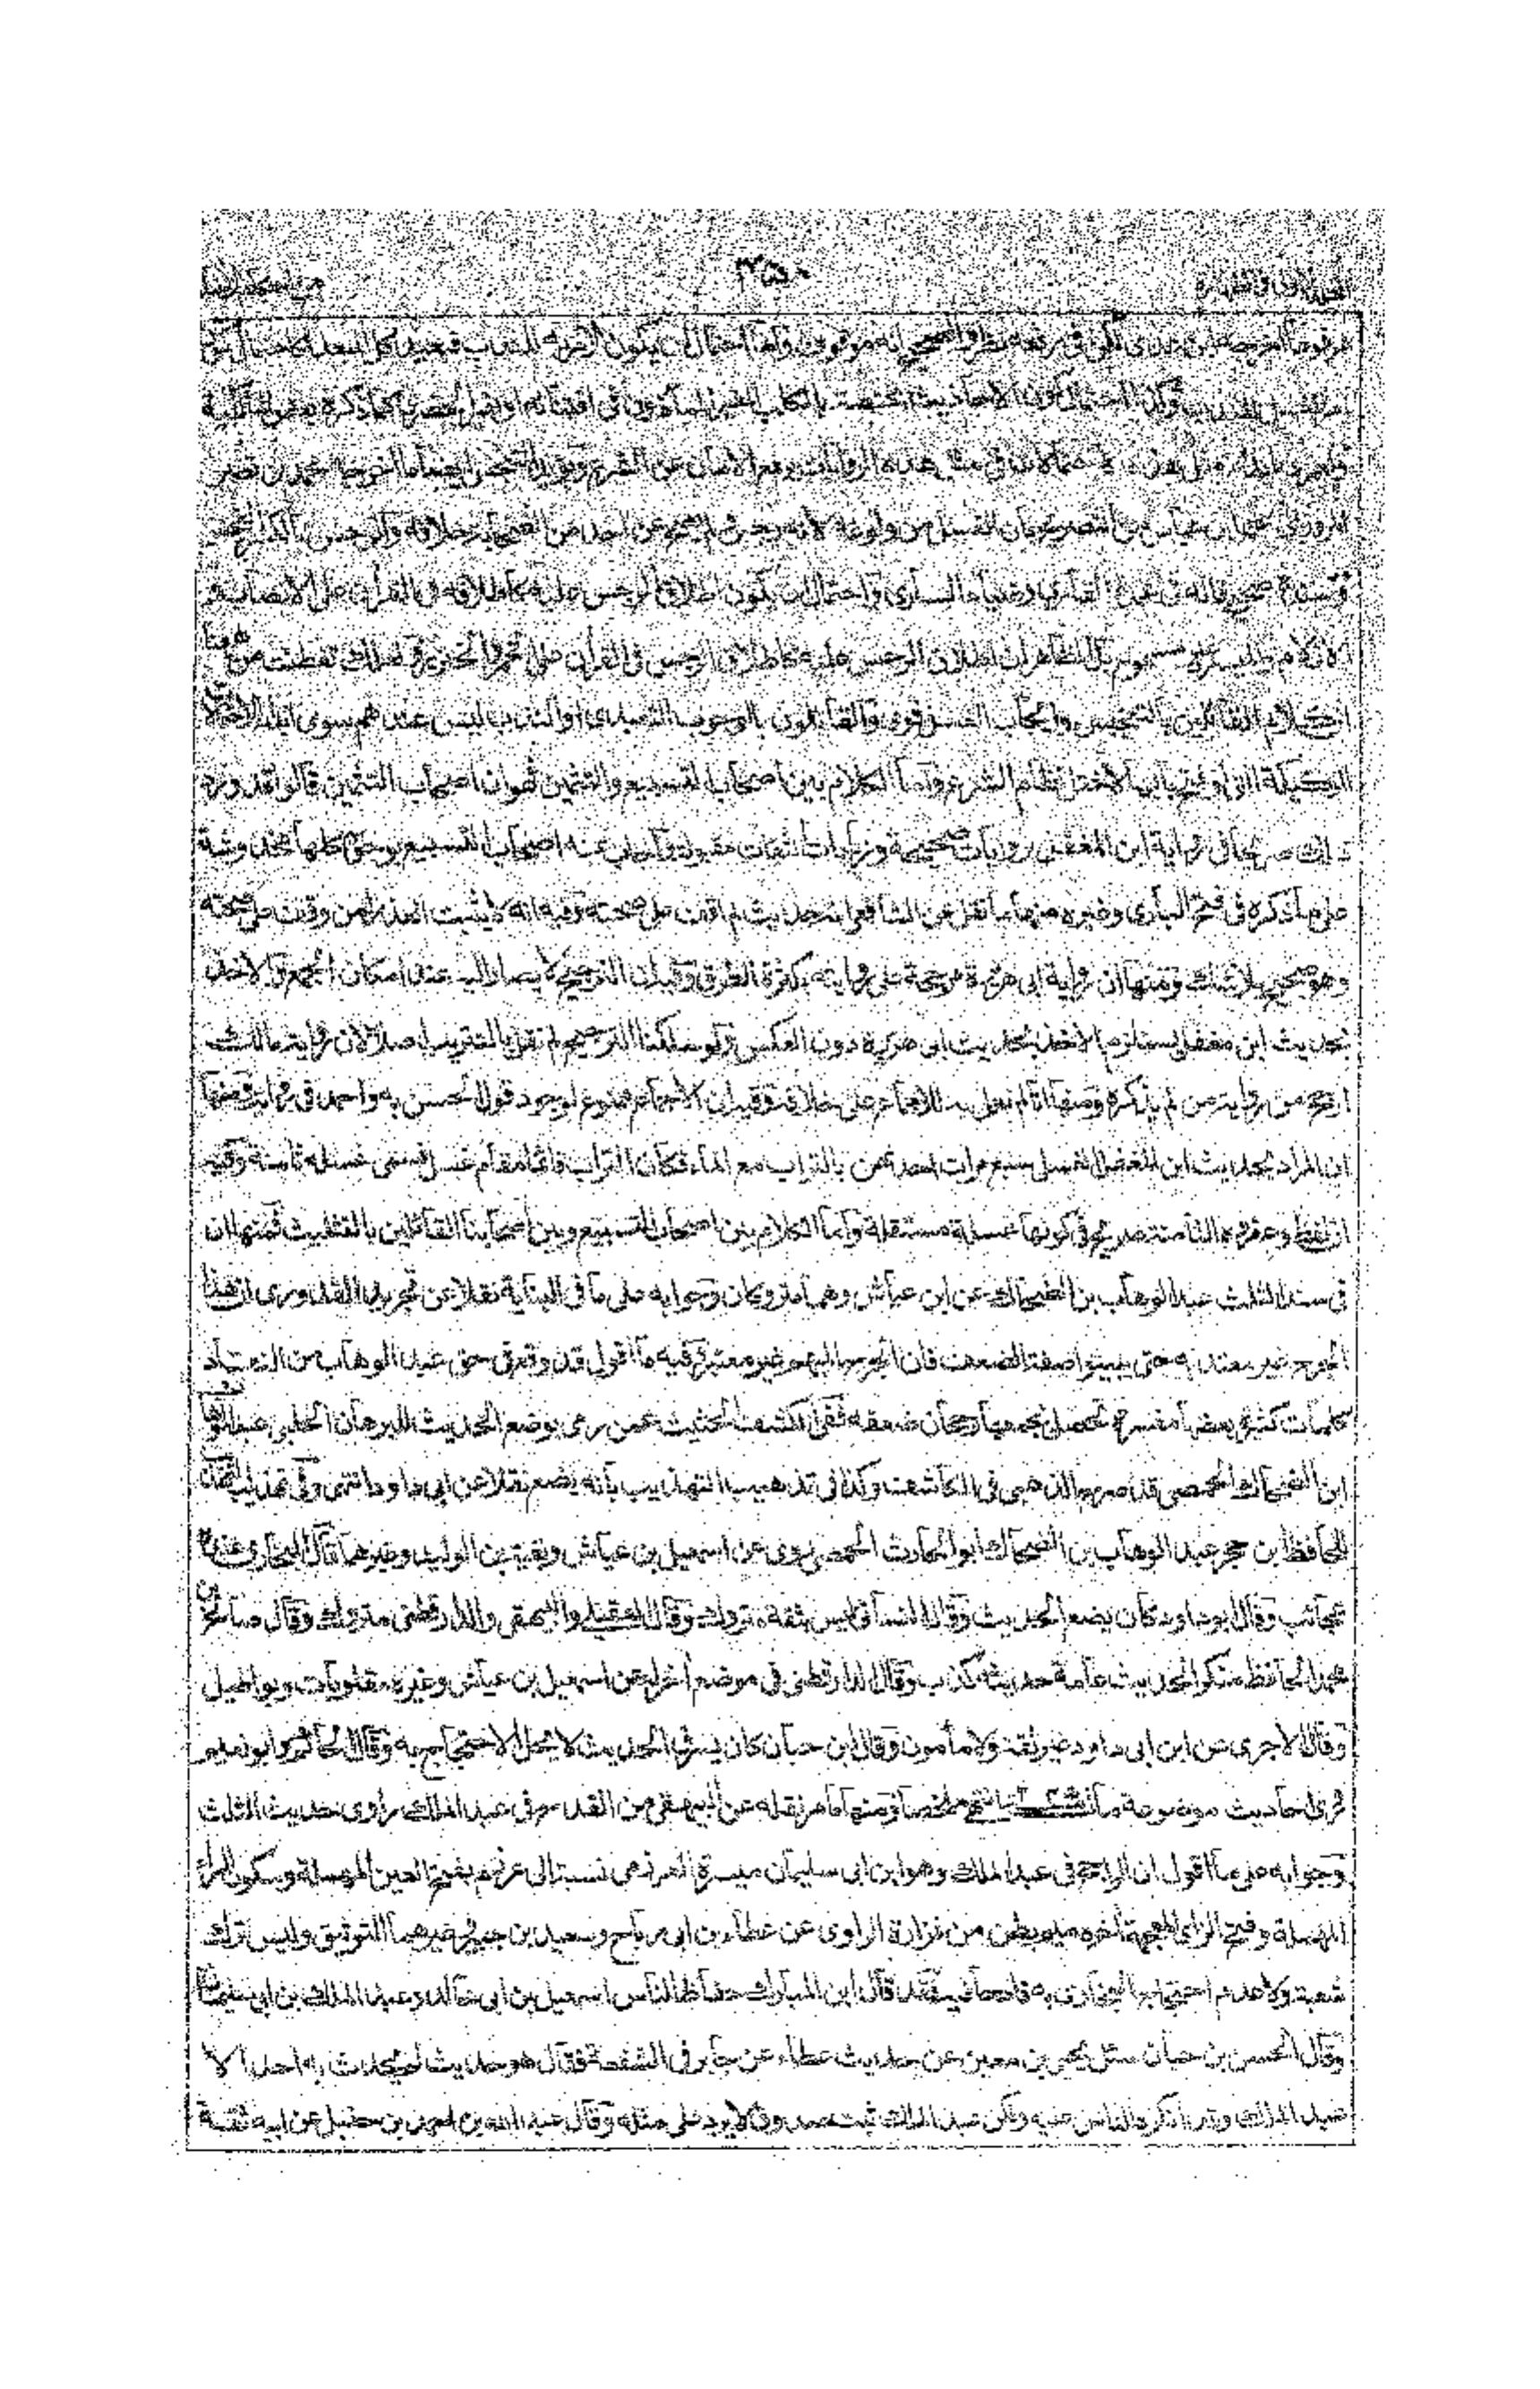 ٤٥٠
مرفوعا أخرجه ابن عدى في رفعه نظر والصحيح انه موقوف واما احتمال ان يكون
وكذا احتمال كون الاحاديث مختصة بالكلب
في مثل هذه الروايات يرفع الامان عن الشرع ويؤيد ايضا ما اخرجه محمد بن نصر
المروزى عن ابن عباس من التصريح بان الغسل من ولوغه لانه رجس ولم يصح عن احد من الصحابة خلافه
صحيح قاله في فتح البارى واحتمال ان يكون اطلاق الرجس عليه كاطلاقه في القرأن على الانصاب
بل الظاهر ان اطلاق الرجس عليه كاطلاق الرجس في القرأن على الخمر والخنزير
ان كلام القائلين بالتنجيس وايجاب الغسل قوى والقائلون بالوجوب التعبدى او الندب ليس عندهم سوى ابداء
الركيكة التى لاختل نظام الشرع واما الكلام بين اصحاب التسبيع والتثمين فهو ان اصحاب التثمين قالوا قد ورد
ذلك صريحا في رواية ابن المغفل بروايات صحيحة وزيادات الثقات مقبولة واجاب عنه اصحاب التسبيع بوجوه كلها مخدوشة
على ما ذكره في فتح البارى وغيره منها ما نقل عن الشافعى انه حديث لم اقف على صحته وفيه انه لا يثبت العذر لمن وقف على صحته
وهو صحيح بلا شك ومنها ان رواية ابى هريرة مرجحة على روايته بكثرة الطرق وفيه ان الترجيح لا يصار اليه عند امكان الجمع والاخذ
بحديث ابن مغفل يستلزم الاخذ بحديث ابى هريرة دون العكس ولو سلكنا الترجيح لم نقل بالتتريب اصلا لان رواية مالك
ارجح من رواية من لم يذكره ومنها انا لم نقل به للاجماع على خلافه وفيه ان الاجماع ممنوع لوجود قول الحسن به واحمد في رواية ومنها
ان المراد بحديث ابن المغفل الغسل سبع مرات احدهن بالتراب مع الماء فكان التراب قائما مقام غسل فسمى غسله ثامنة وفيه
ان لفظ وعفروه الثامنة صريح في كونها غسلة مستقلة واما الكلام بين اصحاب التسبيع وبين اصحابنا القائلين بالتثليث فمنها ان
في سند الثلث عبد الوهاب بن الضحاك عن ابن عياش وهما متروكان وجوابه على ما في البناية نقلا عن تجريد القدورى ان هذا
الجرح غير معتد به حتى يبينوا صفة الضعف فان الجرح المبهم غير معتبر وفيه ما اقول قد وقع في حق عبد الوهاب من النقاد
كلمات كثيرة بعضها مفسرة تحصل بجمعها رجحان ضعفه ففى الكشف الحثيث عمن رمى بوضع الحديث للبرهان الحلبى عبد الوهاب
ابن الضحاك الحمصى قد صرح الذهبى في الكاشف وكذا في تذهيب التهذيب بأنه يضع نقلا عن ابى داود انتهى وفي تهذيب التهذيب
للحافظ ابن حجر عبد الوهاب بن الضحاك ابو الحارث الحمصى روى عن اسمعيل بن عياش وبقية بن الوليد وغيرهما قال البخارى عنده
عجائب وقال ابو داود كان يضع الحديث وقال النسائى ليس بثقة متروك وقال العقيلى والبيهقى والدارقطنى متروك وقال صالح بن
محمد الحافظ منكر الحديث عامة حديثه كذب وقال الدارقطنى في موضع أخر له عن اسمعيل بن عياش وغيره مقلوبات وبواطيل
وقال الأجرى عن ابن ابى داود غير ثقة ولا مأمون وقال ابن حبان كان يسرق الحديث لا يحل الاحتجاج به وقال الحاكم وابو نعيم
روى احاديث موضوعة انتهى ملخصا ومنها ما مر نقله عن البيهقى من القدح في عبد الملك راوى حديث الثلث
وجوابه على ما اقول ان الراجح في عبد الملك وهو ابن ابى سليمان ميسرة العرزمى نسبة الى عرزم بفتح العين المهملة وسكون الراء
المهملة وفتح الزاى المعجمة أخره ميم بطن من فزارة الراوى عن عطاء بن ابى رباح وسعيد بن جبير وغيرهما التوثيق وليس ترك
شعبة ولا عدم احتجاج البخارى به قادحا فيه فقد قال ابن المبارك حفاظ الناس اسمعيل بن ابى خالد وعبد الملك بن ابى سليمان
وقال الحسن بن حبان سئل يحيى بن معين عن حديث عطاء عن جابر في الشفعة فقال هو حديث لم يحدث به احد الا
عبد الملك وقد انكره الناس عليه ولكن عبد الملك ثبت صدوق لا يرد على مثله وقال عبد الله بن احمد بن حنبل عن ابيه ثقة